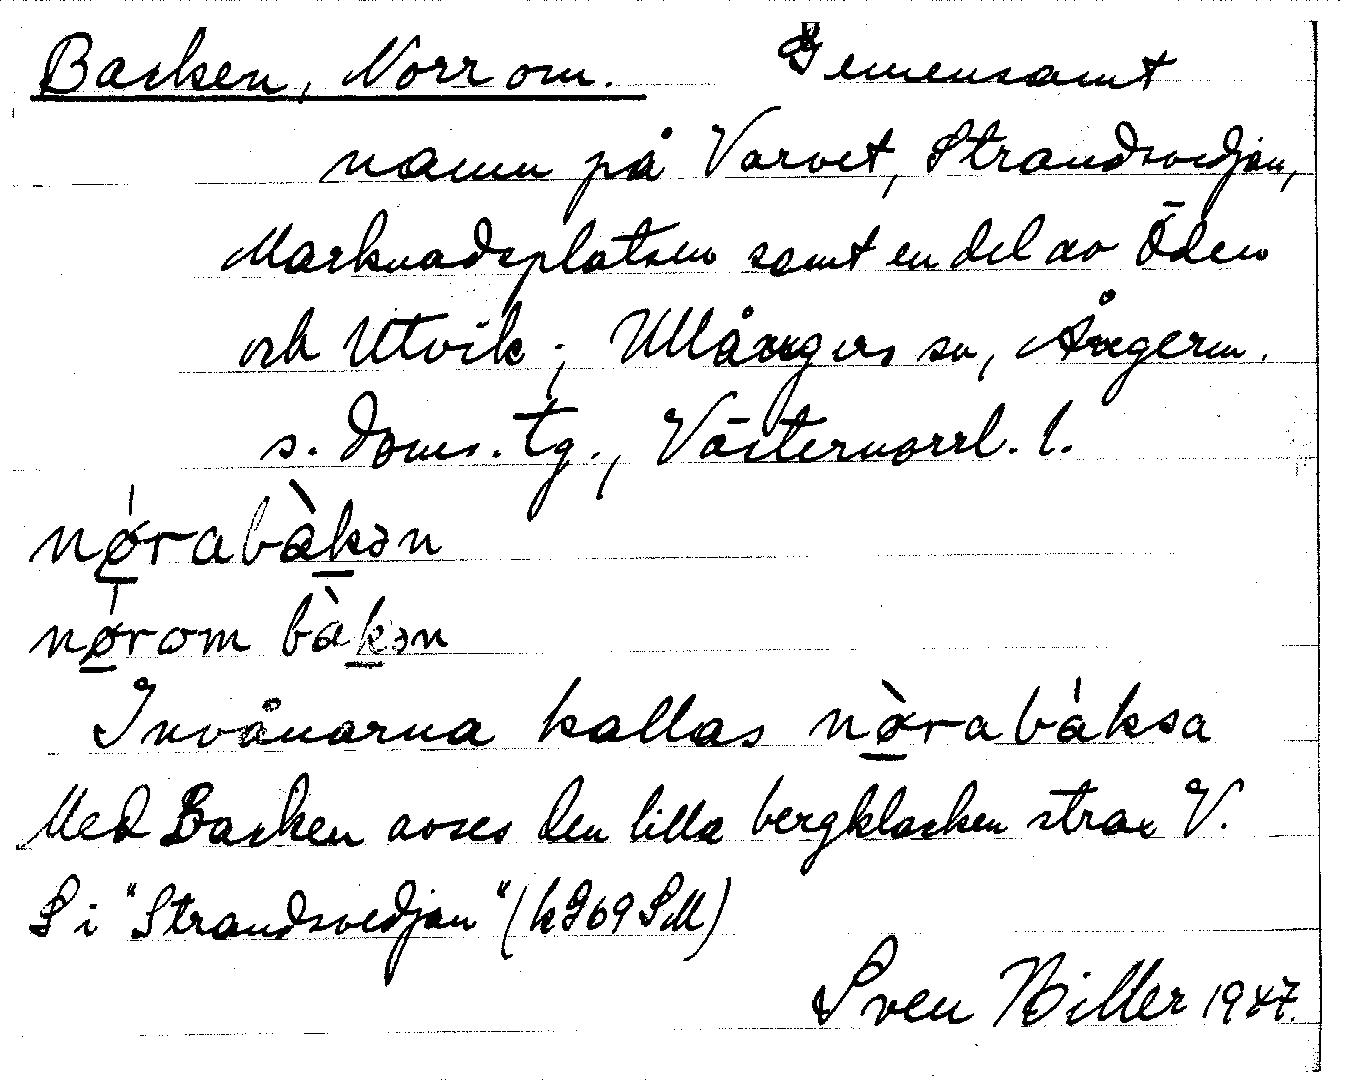 Backen, Norr om. Gemensamt
namn på Varvet, Strandsvedjan,
Marknadsplatsen samt en del av Öden
och Utvik; Ullångers sn, Ångerm.
s. doms. tg., Västernorrl. l.
nǿrabàkən
nǿrom bàkən
Invånarna kallas nø̀rabáksa
Med Backen avses den lilla bergklacken strax V.
S i "Strandsvedjan" (k369SM)
Sven Hiller 1947.